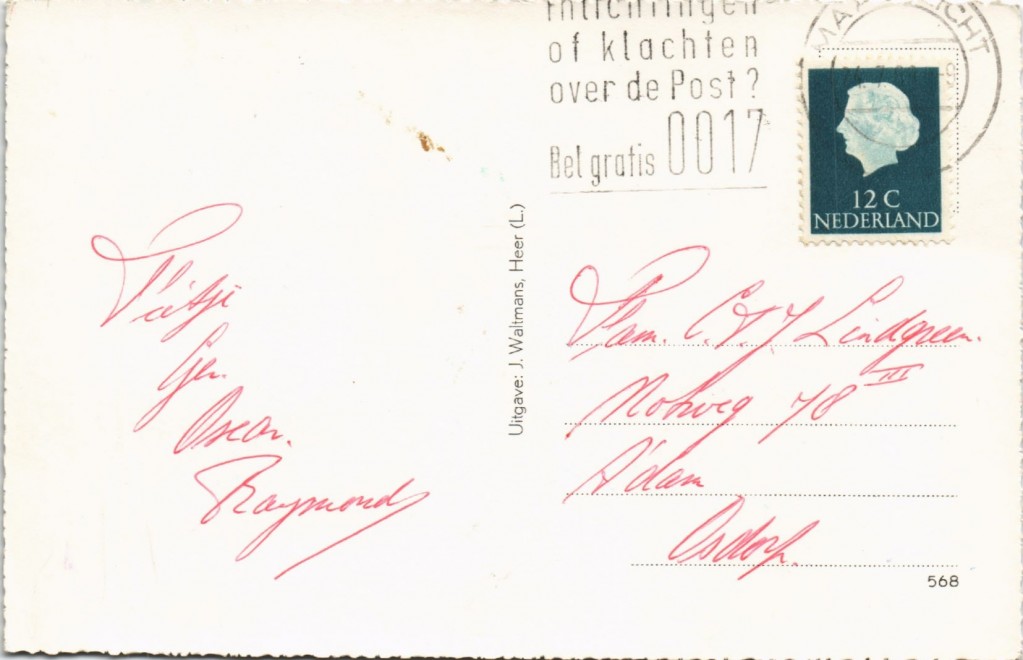 of klachten
over de Post?
Bel gratis 0017
MAA ICHT
12 C
NEDERLAND
Uitgave: J. Waltmans, Heer (L.)
Ger.
Oscar.
Raymond
Fam. C. F. J Lindgreen.
Notweg 78 III
A'dam
Osdorp.
568